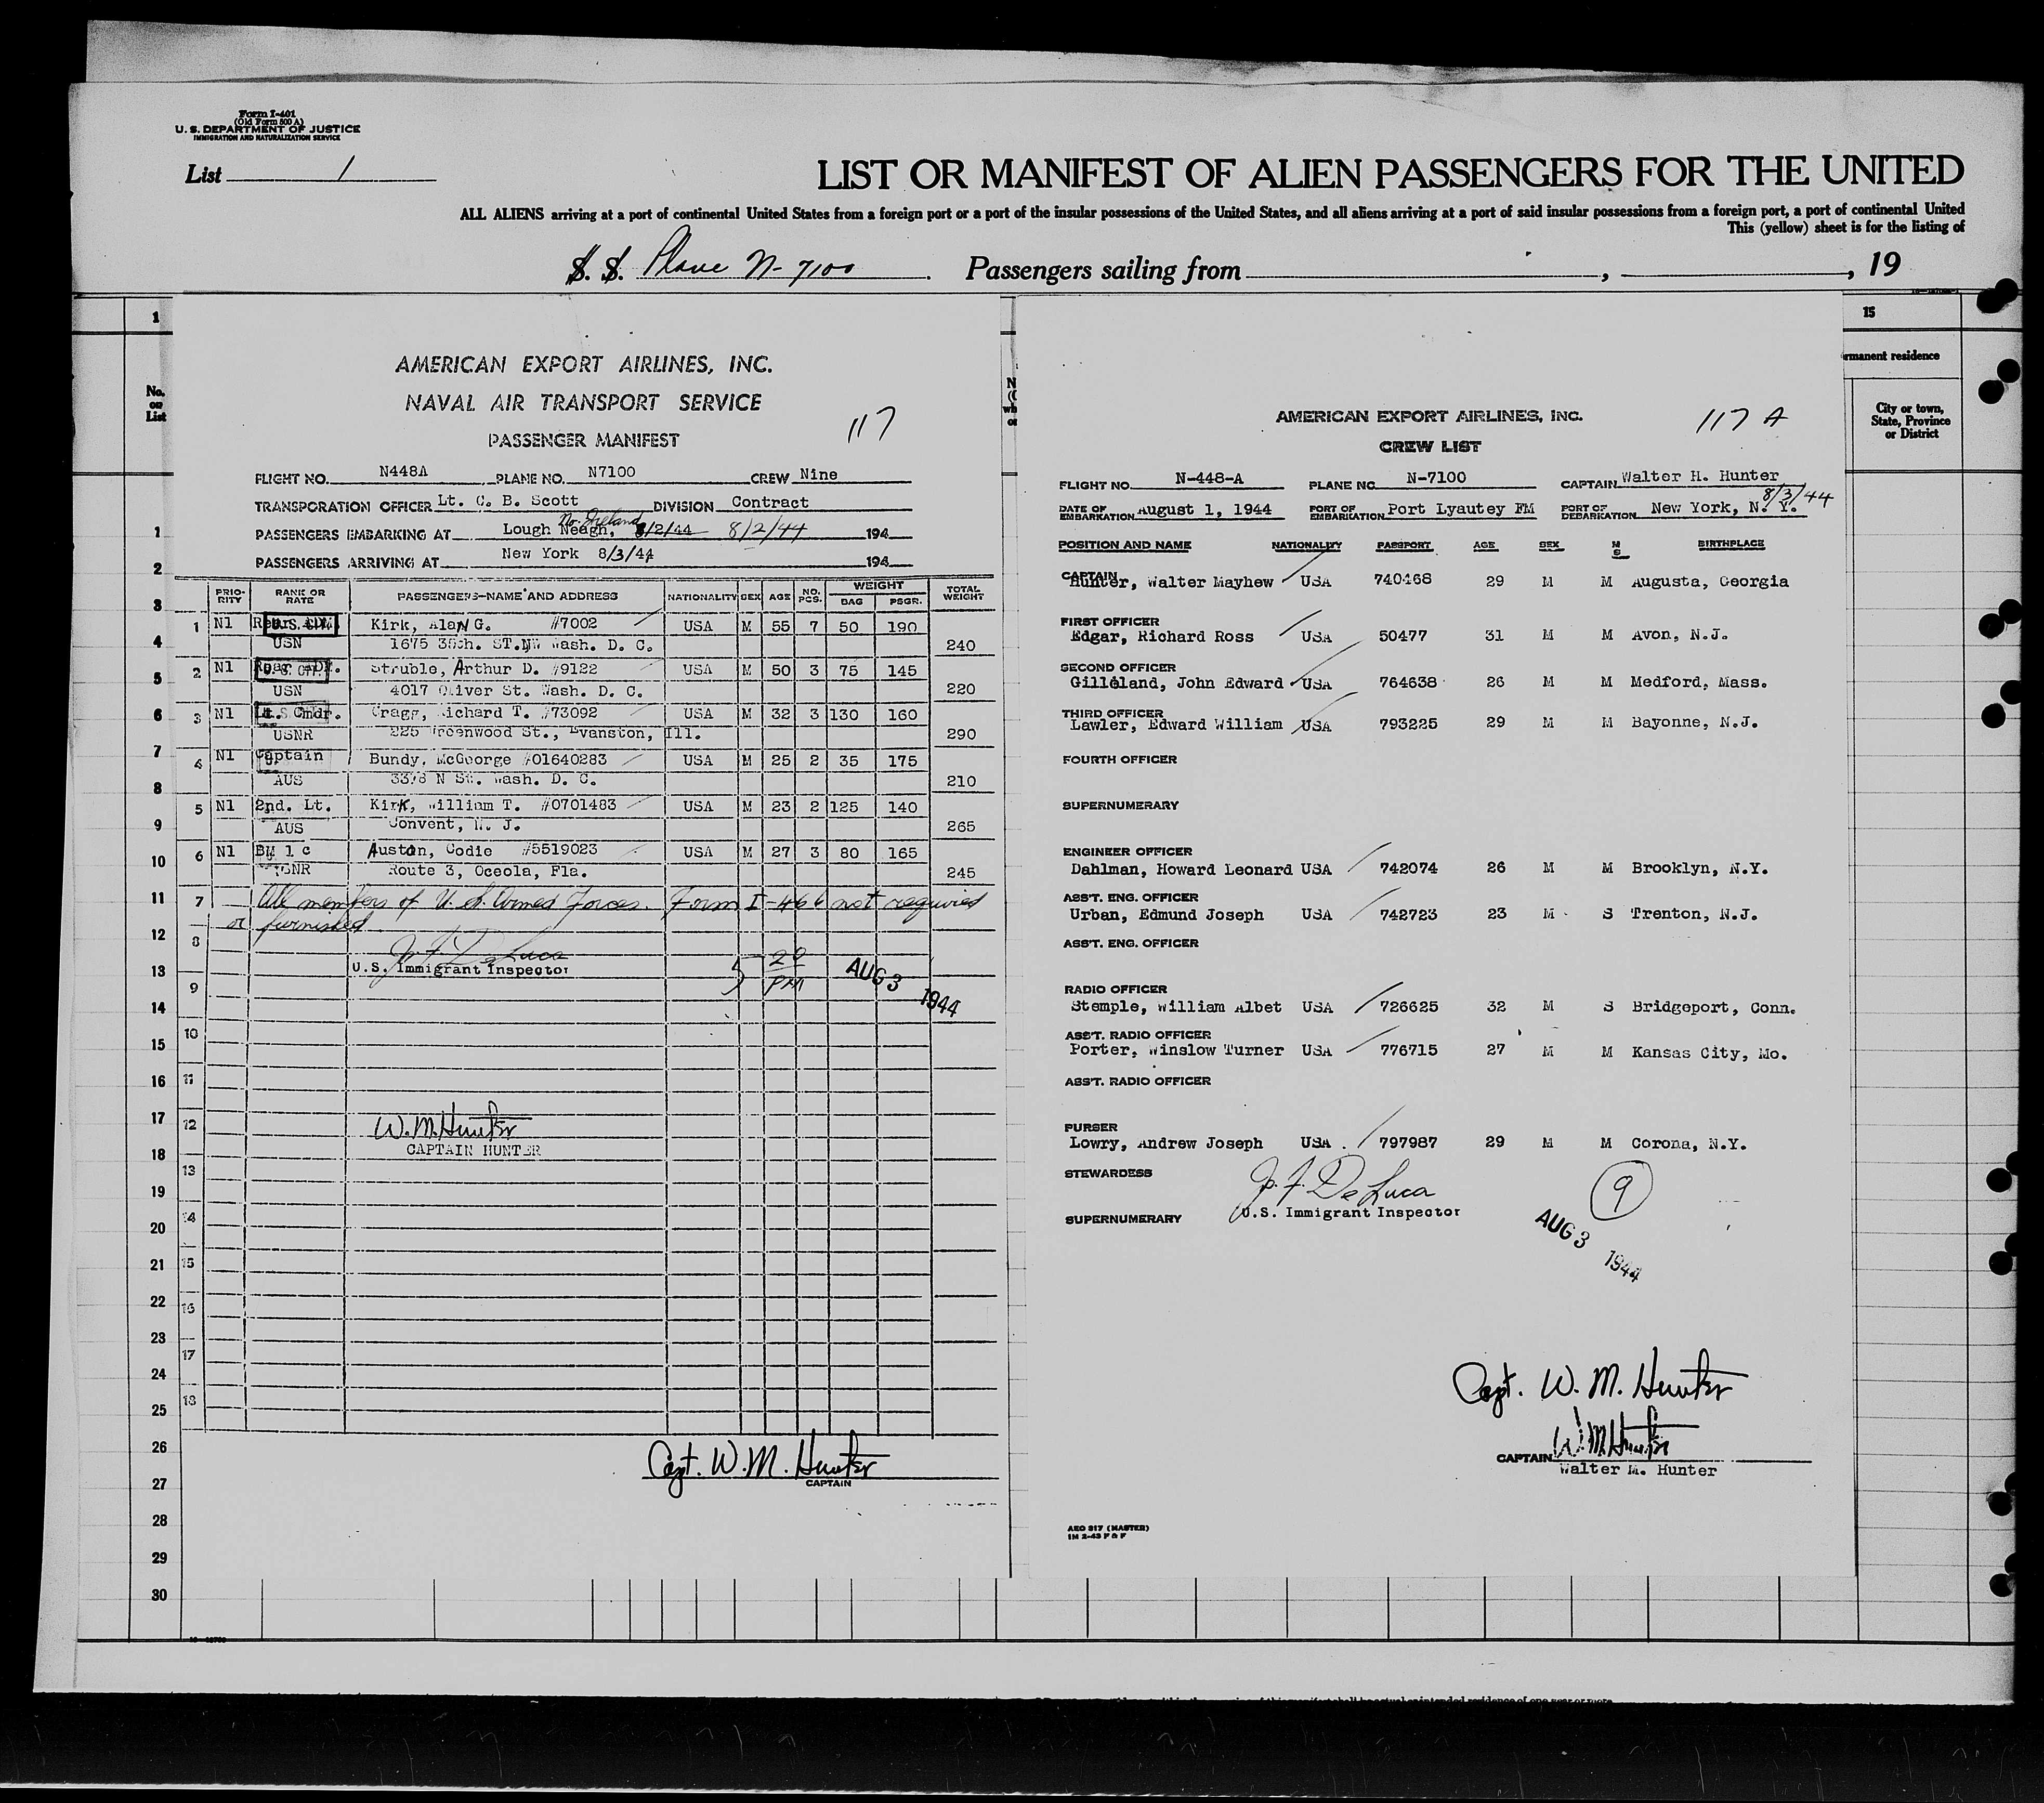 Form I-401
(Old Form 500 A)
U. S. DEPARTMENT OF JUSTICE
IMMIGRATION AND NATURALIZATION SERVICE
List 1
LIST OR MANIFEST OF ALIEN PASSENGERS FOR THE UNITED
ALL ALIENS arriving at a port of continental United States from a foreign port or a port of the insular possessions of the United States, and all aliens arriving at a port of said insular possessions from a foreign port, a port of continental United
This (yellow) sheet is for the listing of
S. S. Plane N-7100 Passengers sailing from , , 19
1
No. on List
AMERICAN EXPORT AIRLINES, INC.
NAVAL AIR TRANSPORT SERVICE
PASSENGER MANIFEST
117
FLIGHT NO. N448A PLANE NO. N7100 CREW Nine
TRANSPORATION OFFICER Lt. C. B. Scott DIVISION Contract
PASSENGERS EMBARKING AT Lough Neagh, No. Ireland 8/2/44 8/2/44 194
PASSENGERS ARRIVING AT New York 8/3/44 194
PRIORITY RANK OR RATE PASSENGERS-NAME AND ADDRESS NATIONALITY SEX AGE NO. PCS. WEIGHT BAG PSGR. TOTAL WEIGHT
1 N1 Kirk, Alan G. #7002 USA M 55 7 50 190
USN 1675 35th. ST.NW Wash. D. C. 240
2 N1 Struble, Arthur D. #9122 USA M 50 3 75 145
USN 4017 Oliver St. Wash. D. C. 220
3 N1 Lt. Cmdr. Cragg, Richard T. #73092 USA M 32 3 130 160
USNR 225 Greenwood St., Evanston, Ill. 290
4 N1 Captain Bundy, McGeorge #01640283 USA M 25 2 35 175
AUS N St. Wash. D. C. 210
5 N1 2nd. Lt. Kirk, William T. #0701483 USA M 23 2 125 140
AUS Convent, N. J. 265
6 N1 BM 1 c Godie #5519023 USA M 27 3 80 165
USNR Route 3, Oceola, Fla. 245
7 All members of U. S. Armed Forces. Form I-466 not required
or furnished
8 J. F. DeLuca
U.S. Immigrant Inspector
5 20 PM AUG 3 1944
9
10
11
12 W. M. Hunter
CAPTAIN HUNTER
13
14
15
16
17
18
Capt. W. M. Hunter
CAPTAIN
AMERICAN EXPORT AIRLINES, INC.
117 A
CREW LIST
FLIGHT NO. N-448-A PLANE NO. N-7100 CAPTAIN Walter H. Hunter
8/3/44
DATE OF EMBARKATION August 1, 1944 PORT OF EMBARKATION Port Lyautey FM PORT OF DEBARKATION New York, N. Y.
POSITION AND NAME NATIONALITY PASSPORT AGE SEX M S BIRTHPLACE
CAPTAIN
Hunter, Walter Mayhew USA 740468 29 M M Augusta, Georgia
FIRST OFFICER
Edgar, Richard Ross USA 50477 31 M M Avon, N.J.
SECOND OFFICER
Gilleland, John Edward USA 764638 26 M M Medford, Mass.
THIRD OFFICER
Lawler, Edward William USA 793225 29 M M Bayonne, N.J.
FOURTH OFFICER
SUPERNUMERARY
ENGINEER OFFICER
Dahlman, Howard Leonard USA 742074 26 M M Brooklyn, N.Y.
ASS'T. ENG. OFFICER
Urban, Edmund Joseph USA 742723 23 M S Trenton, N.J.
ASS'T. ENG. OFFICER
RADIO OFFICER
Stemple, William Albet USA 726625 32 M S Bridgeport, Conn.
ASS'T. RADIO OFFICER
Porter, Winslow Turner USA 776715 27 M M Kansas City, Mo.
ASS'T. RADIO OFFICER
PURSER
Lowry, Andrew Joseph USA 797987 29 M M Corona, N.Y.
STEWARDESS
J. F. DeLuca
U.S. Immigrant Inspector
9
SUPERNUMERARY
AUG 3 1944
Capt. W. M. Hunter
W M Hunter
CAPTAIN
Walter M. Hunter
AEO 317 (MASTER)
1M 2-43 P & F
15
rmanent residence
City or town, State, Province or District
1
2
3
4
5
6
7
8
9
10
11
12
13
14
15
16
17
18
19
20
21
22
23
24
25
26
27
28
29
30